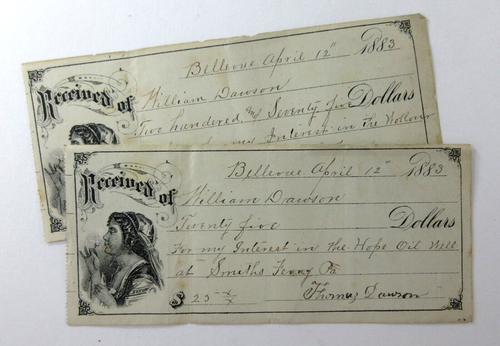 Bellevue April 12" 1883
Received of William Dawson
Two hundered and Seventy five Dollars
Interest in the
Bellevue April 12" 1883
Received of William Dawson
Twenty five Dollars
For my Interest in the Hope Oil Well
at Smiths Ferry Pa
$ 25 x/x Thomas Dawson